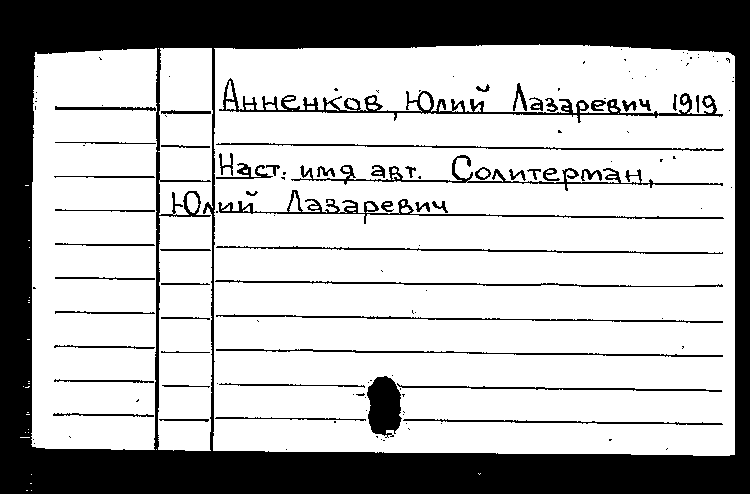 Анненков, Юлий Лазаревич, 1919
Наст. имя авт. Солитерман,
Юлий Лазаревич